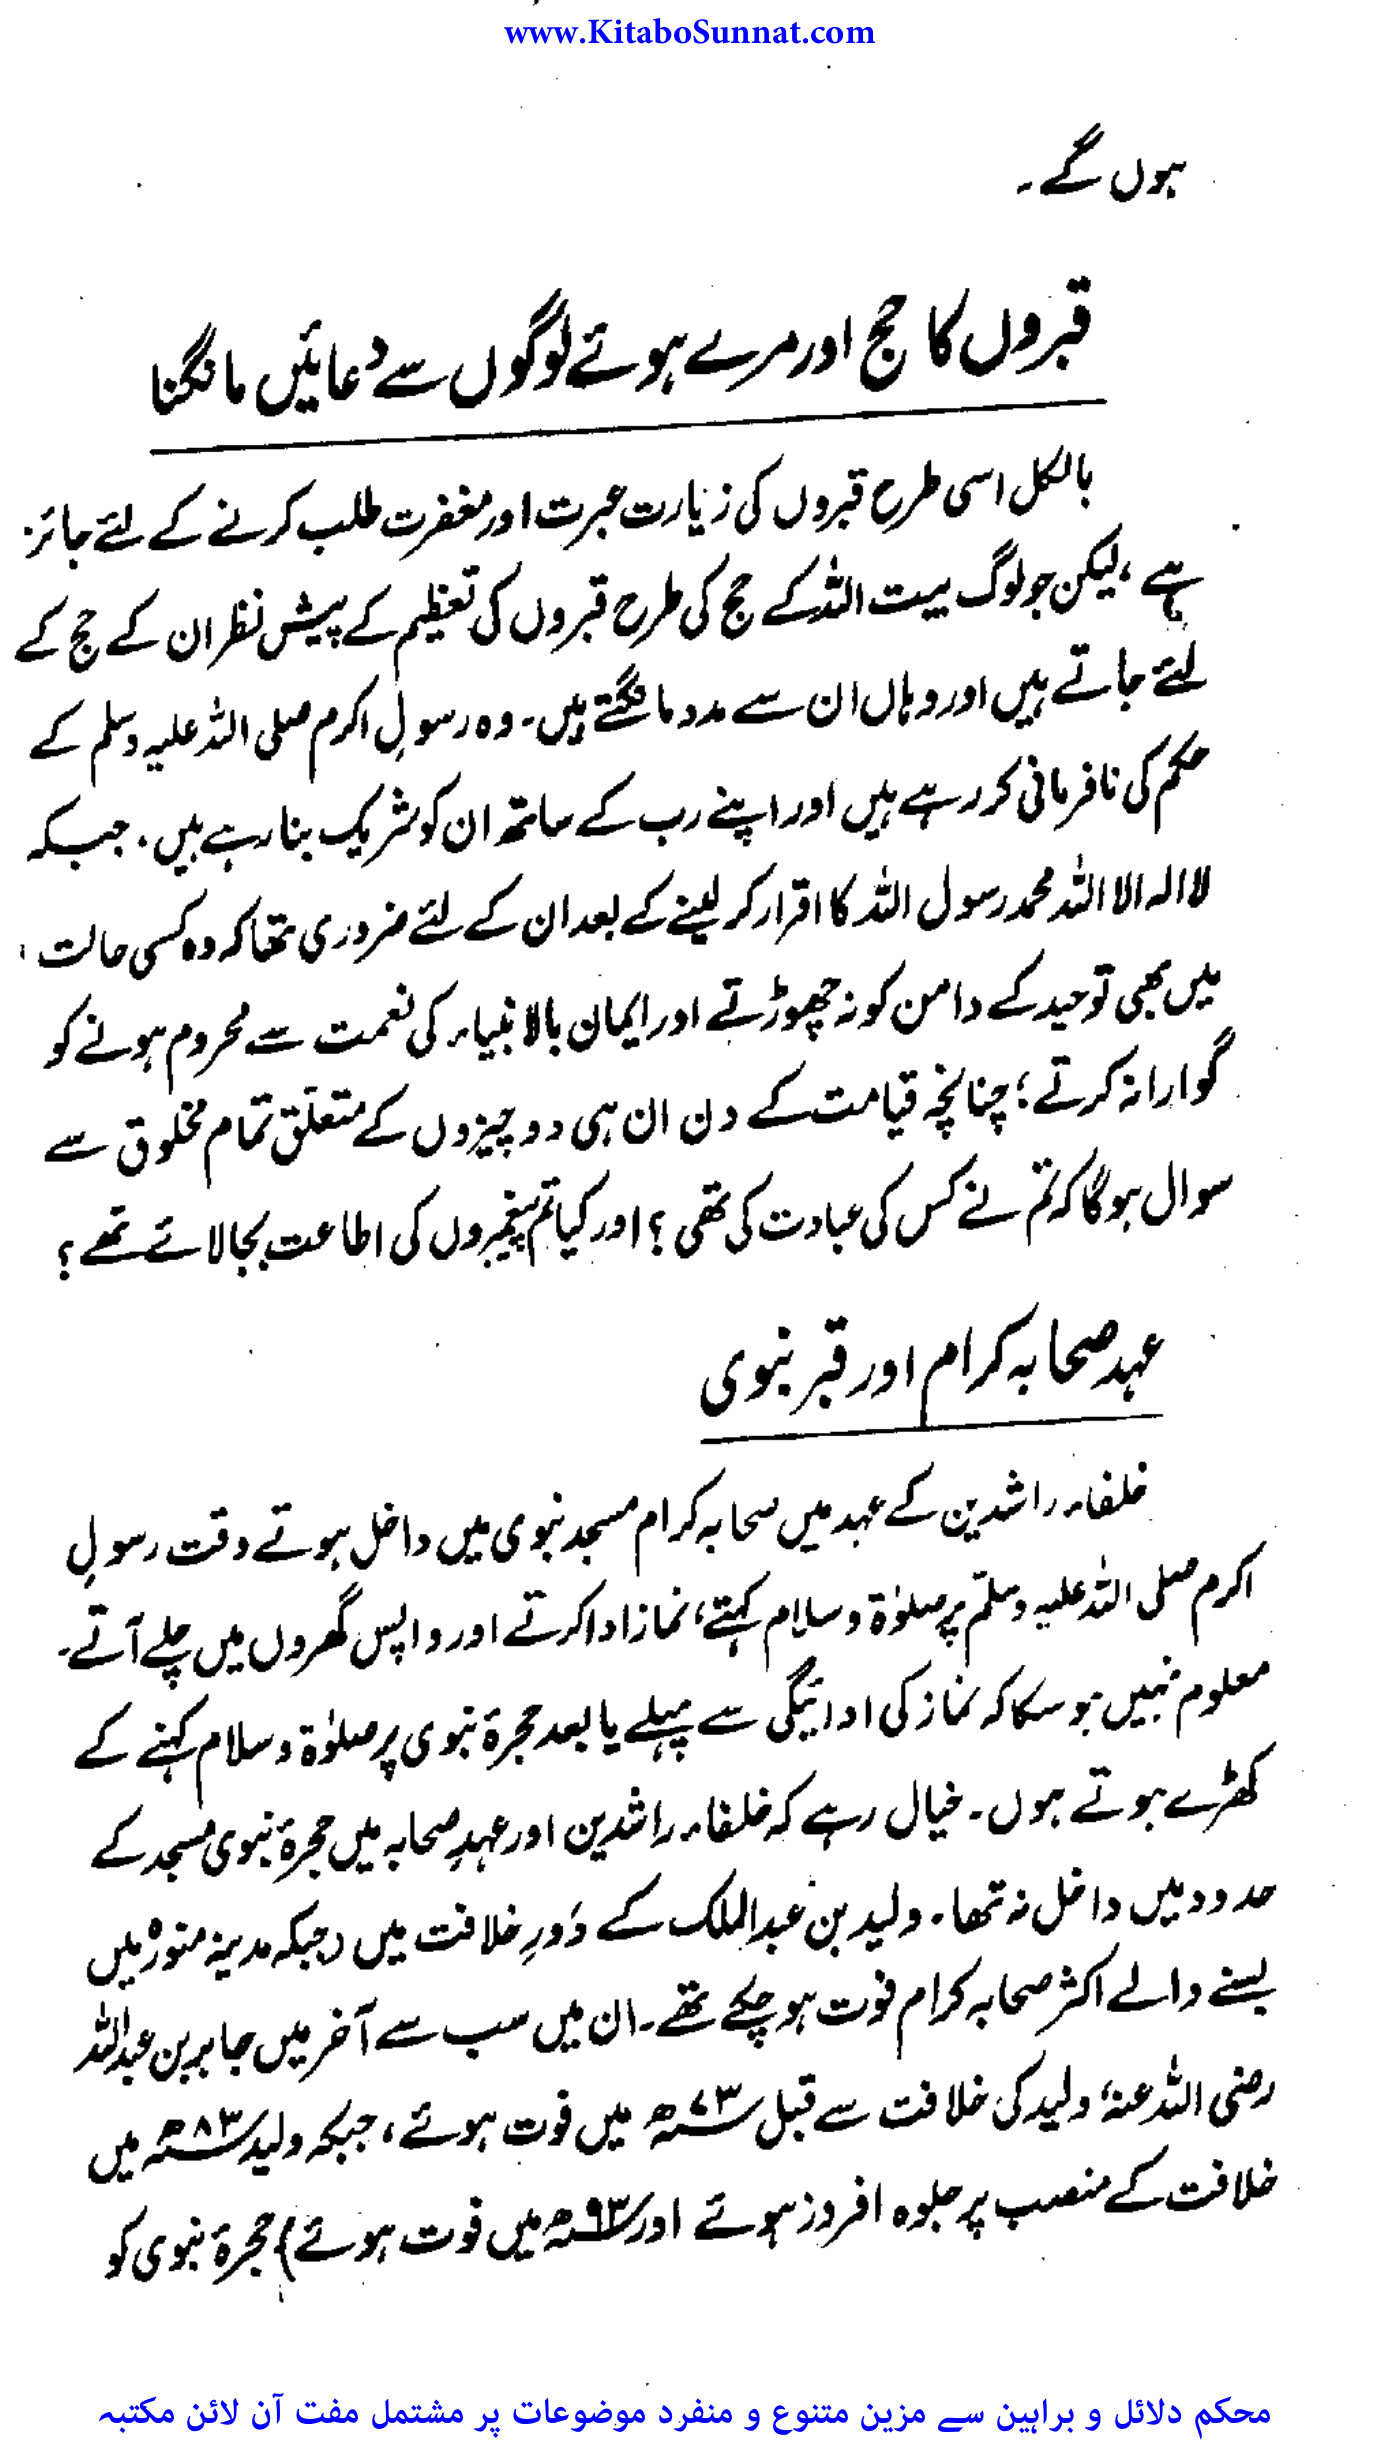 www.KitaboSunnat.com
ہوں گے۔
قبروں کا حج اور مرے ہوئے لوگوں سے دعائیں مانگنا
بالکل اسی طرح قبروں کی زیارت عبرت اور مغفرت طلب کرنے کے لئے جائز
ہے، لیکن جو لوگ بیت اللہ کے حج کی طرح قبروں کی تعظیم کے پیش نظر ان کے حج کے
لئے جاتے ہیں اور وہاں ان سے مدد مانگتے ہیں۔ وہ رسولِ اکرم صلی اللہ علیہ وسلم کے
حکم کی نافرمانی کر رہے ہیں اور اپنے رب کے ساتھ ان کو شریک بنا رہے ہیں۔ جبکہ
لا الہ الا اللہ محمد رسول اللہ کا اقرار کر لینے کے بعد ان کے لئے ضروری تھا کہ وہ کسی حالت
میں بھی توحید کے دامن کو نہ چھوڑتے اور ایمان بالانبیاء کی نعمت سے محروم ہونے کو
گوارا نہ کرتے؛ چنانچہ قیامت کے دن ان ہی دو چیزوں کے متعلق تمام مخلوق سے
سوال ہوگا کہ تم نے کس کی عبادت کی تھی؟ اور کیا تم پیغمبروں کی اطاعت بجا لائے تھے؟
عہد صحابہ کرام اور قبر نبوی
خلفاء راشدین کے عہد میں صحابہ کرام مسجد نبوی میں داخل ہوتے وقت رسولِ
اکرم صلی اللہ علیہ وسلّم پر صلوٰۃ و سلام کہتے، نماز ادا کرتے اور واپس گھروں میں چلے آتے۔
معلوم نہیں ہو سکا کہ نماز کی ادائیگی سے پہلے یا بعد حجرۃ نبوی پر صلوٰۃ و سلام کہنے کے
کھڑے ہوتے ہوں۔ خیال رہے کہ خلفاء راشدین اور عہدِ صحابہ میں حجرۃ نبوی مسجد کے
حدود میں داخل نہ تھا۔ ولید بن عبدالملک کے دَورِ خلافت میں (جبکہ مدینہ منورہ میں
بسنے والے اکثر صحابہ کرام فوت ہو چکے تھے۔ ان میں سب سے آخر میں جابر بن عبداللہ
رضی اللہ عنہ، ولید کی خلافت سے قبل ۷۳ھ میں فوت ہوئے، جبکہ ولید ۸۳ھ میں
خلافت کے منصب پر جلوہ افروز ہوئے اور ۹۳ھ میں فوت ہوئے) حجرۃ نبوی کو
محکم دلائل و براہین سے مزین متنوع و منفرد موضوعات پر مشتمل مفت آن لائن مکتبہ